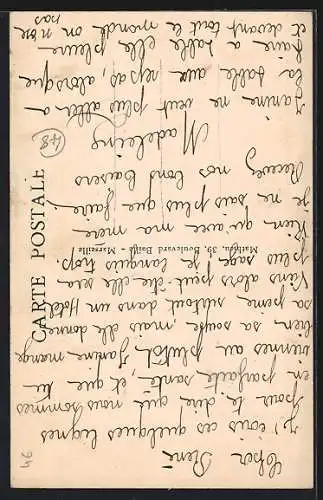 CARTE POSTALE
Mathieu, 39, Boulevard Baille - Marseille
48
Cher René
j'écris ces quelques lignes
pour te dire que nous sommes
en parfaite santé, et que tu
viennes au plutôt. Janine mange
bien sa soupe, mais elle donne
sa peine surtout dans un Hotel
Viens alors peut-être elle sera
plus sage. Je languis trop.
Rien qu'avec ma mère
je ne sais plus que faire
nos bons baisers
Madeleine
Janine ne veut plus aller a
la table aux repas, alors que
faire a table elle pleure
et devant tout le monde on n'ose
pas